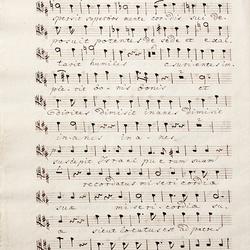 spersit superbos mente cordis sui de-
posuit potentes de sede et exal-
tavit humiles esurientes im-
plevit bonis et
divites dimisit inanes dimisit
inanes inanes
suscepit Israel puerum suum
recordatus misericordia
sua misericordia su-
a sicut locutus est ad patres